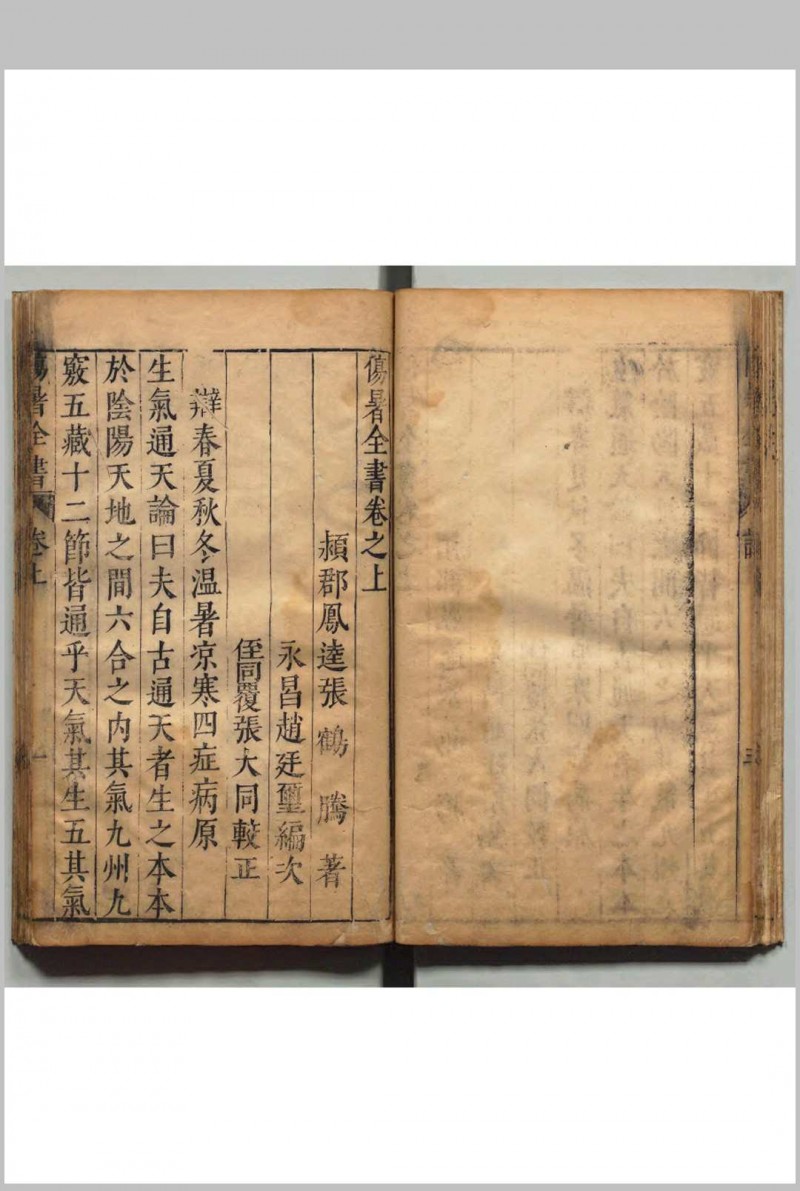 傷暑全書卷之上
潁郡鳳逵張鶴騰著
永昌趙廷璽編次
侄同覆張大同較正
辯春夏秋冬温暑凉寒四症病原
生氣通天論曰夫自古通天者生之本本
於陰陽天地之間六合之内其氣九州九
竅五藏十二節皆通乎天氣其生五其氣
傷暑全書 卷上 一